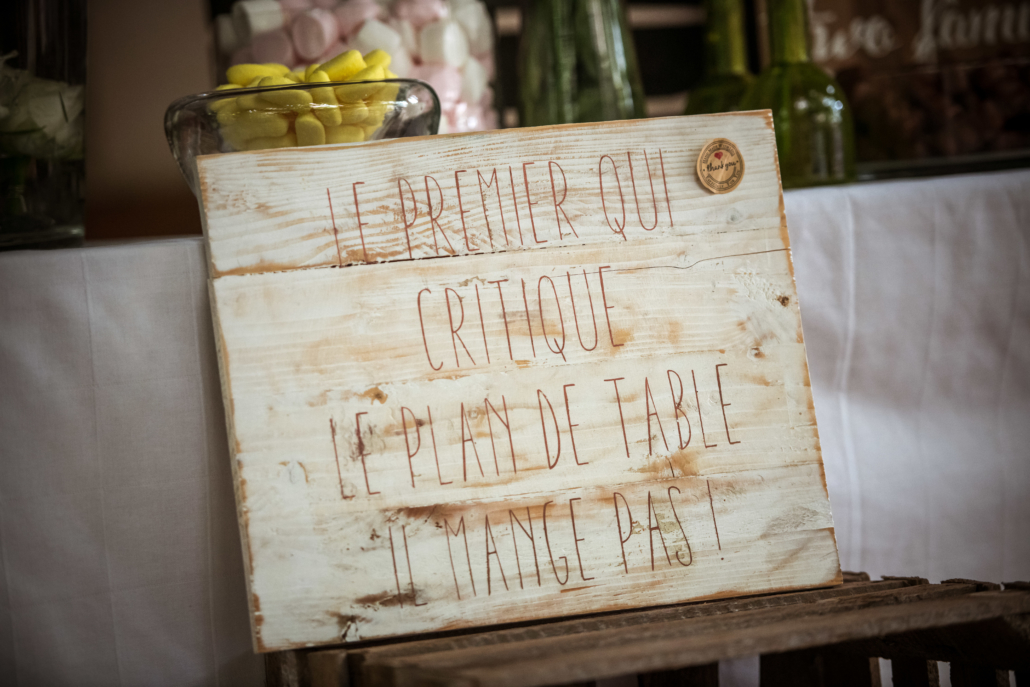 LE PREMIER QUI
CRITIQUE
LE PLAN DE TABLE
IL MANGE PAS !
thank you